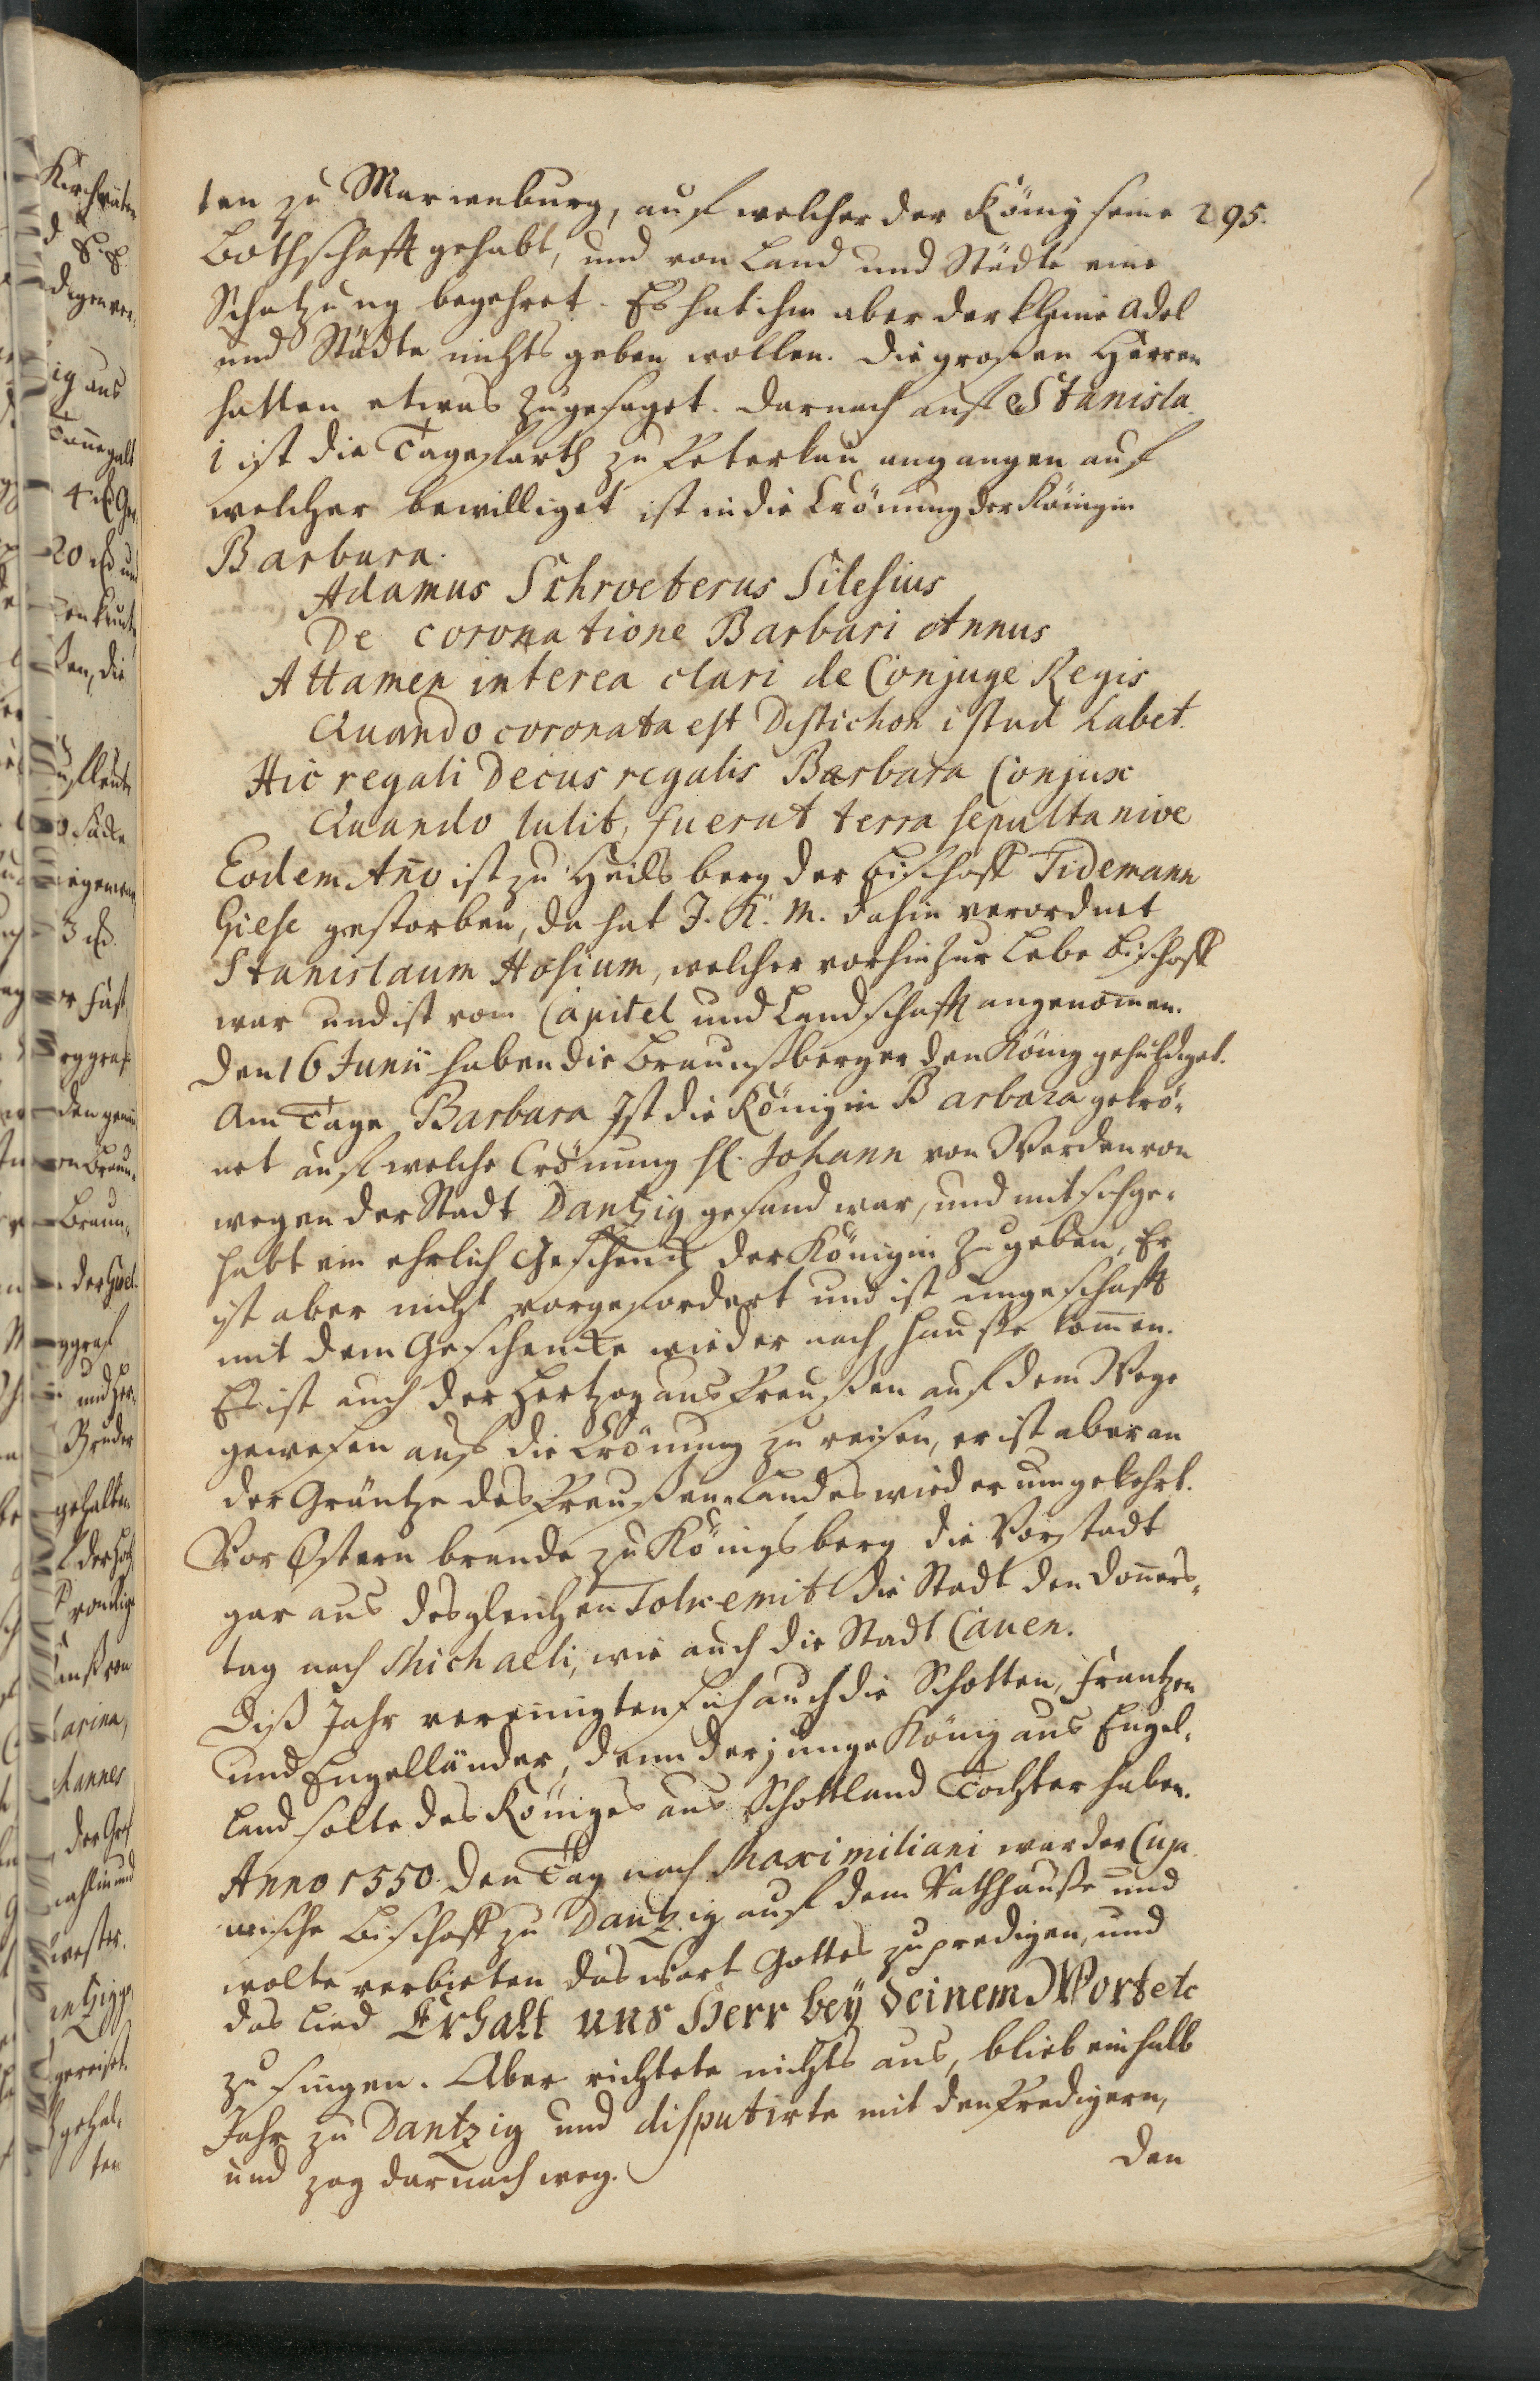 295.
ten zu Marienburg, auf welcher der König seine
Bothschafft gehabt, und von Land und Städte eine
Schatzung begehret. Es hat ihm aber der kleine Adel
und Städte nichts geben wollen. Die großen Herren
hatten etwas zugesaget. Darnach auf Stanisla
i ist die Tagefarth zu Peterkau angangen auf
welcher bewilliget ist in die Crönung der Königin
Barbara.
Adamus Schroeterus Silesius
De coronatione Barbari Annus
Attamen interea clari de Conjuge Regis
Quando coronata est Distichon istud habet.
Hic regali Decus regalis Barbara Conjux
Quando tulit, fuerat terra sepulta nive
Eodem Año ist zu Heilsberg der Bischoff Tidemann
Giese gestorben, da hat J. K. M. dahin verordnet
Stanislaum Hosium, welcher vorhin zur Lebe Bischoff
war und ist vom Capitel und Landschafft angenom̄en.
Den 16 Junii haben die Braunsberger den König gehuldiget.
Am Tage Barbara Ist die Königin Barbara gekrö-
net auf welche Crönung H. Johann von Werden von
wegen der Stadt Dantzig gesand war, und mit sich ge-
habt ein ehrlich Geschenck der Königin zu geben, Er
ist aber nicht vorgefordert und ist ungeschafft
mit dem Geschencke wieder nach Hauße kom̄en.
Es ist auch der Hertzog aus Preußen auf dem Wege
gewesen auf die Crönung zu reisen, er ist aber an
der Gräntze des Preußen-Landes wieder umgekehrt.
Vor Ostern brande zu Königsberg die Vorstadt
gar aus desgleichen Tolkemit die Stadt den Don̄ers-
tag nach Michaeli, wie auch die Stadt Cauen.
Diß Jahr vereinigten sich auch die Schotten, Frantzen
und Engelländer, denn der junge König aus Engel-
land solte des Königes aus Schottland Tochter haben.
Anno 1550 den Tag nach Maximiliani war der Cuja
wische Bischoff zu Dantzig auf dem Rathhauße und
wolte verbieten das Wort Gottes zu predigen, und
das Lied Erhalt uns Herr bey deinem Wort etc
zu singen. Aber richtete nichts aus, blieb ein halb
Jahr zu Dantzig und disputirte mit den Predigern,
und zog darnach weg.
Den